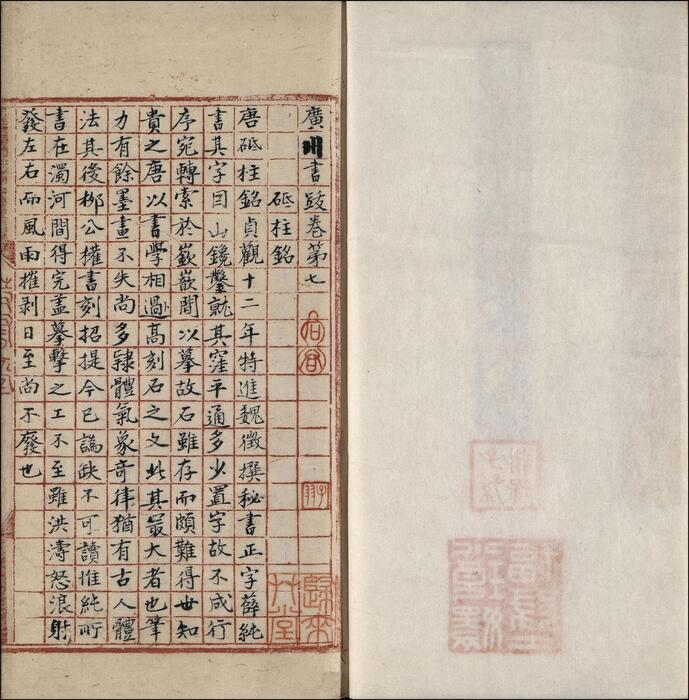 廣川書跋卷第七
砥柱銘
唐砥柱銘貞觀十二年特進魏徵撰秘書正字薛純
書其字因山鑱鑿就其窪平通多少置字故不成行
序宛轉索於嶔嵌間以摹故石雖存而頗難得世知
貴之唐以書學相過高刻石之文此其最大者也筆
力有餘墨畫不失尚多隸體氣象奇律猶有古人體
法其後栁公權書刻招提今已譌缺不可讀惟純所
書在濁河間得完盖摹擊之工不至雖洪濤怒浪射
發左右而風雨摧剥日至尚不廢也
歸來艸堂